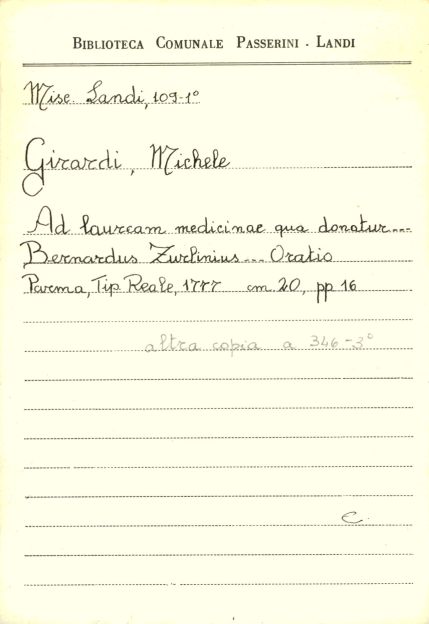 BIBLIOTECA COMUNALE PASSERINI - LANDI
Misc. Landi, 109-1°
Girardi, Michele
Ad lauream medicinae qua donatur...
Bernardus Zurlinius... Oratio
Parma, Tip. Reale, 1777 cm 20, pp 16
altra copia a 346-3°
C.